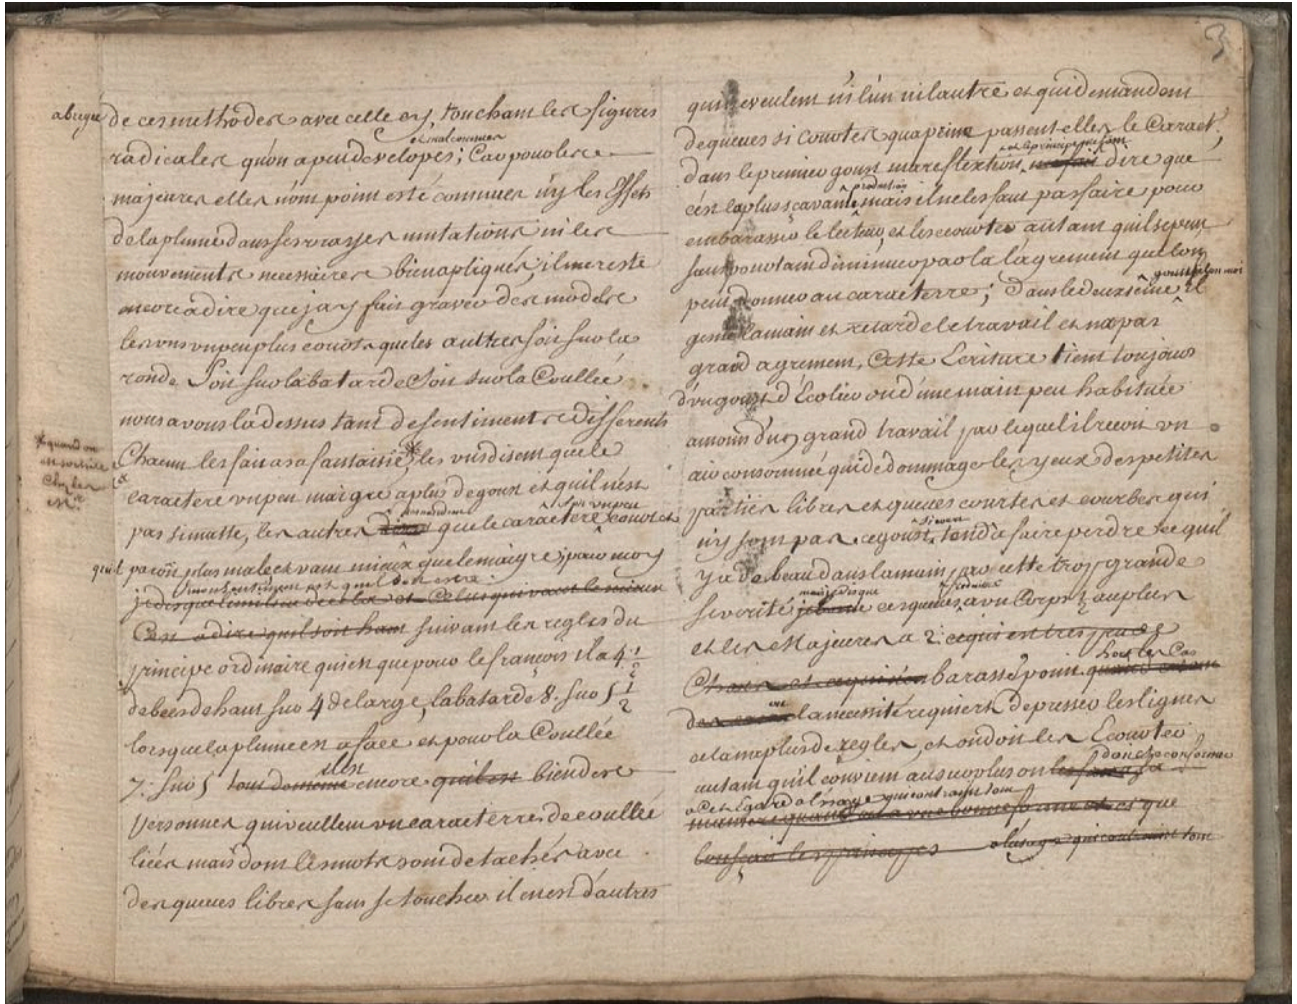 3
abregé de ces methodes avec celle cy, touchant les figures
et mal connues
radicales qu'on a peu developes; Car pour les
majeures elles n'ont point esté connues n'y les Effets
de la plume dans ses vrayes mutations ni les
mouvements necessaires bien apliqués; il me reste
encore a dire que j'ay fait graver des modeles
les uns un peu plus courts que les auttres soit sur la
ronde Soit sur la batarde Soit sur la Coullée
nous avons la dessus tant de sentiments differents
Chacun les fait a sa fantaisie, les uns disent que le
quand on
caractere un peu maigre a plus de goust et quil n'est
soit un peu
pas si matte, les autres que le caractere court et
quil paroit plus mal et vaut mieux que le maigre; pour moy
mon sentiment est quil doit estre
je dis que
C'est a dire quil soit haut suivant les regles du
principe ordinaire qui est que pour le françois il a 4 1/2
de becs de haut sur 4 de large, la batarde 8. sur 5 1/2
lorsque la plume est a face et pour la Coullée
il est
7. sur 5 encore quil est bien des
personnes qui veullent un caracterre de coullée
liées mais dont les mots sont detachés avec
des queues libres sans se toucher il en est d'autres
qui ne veulent ni l'un ni l'autre et qui demandent
de queues si courtes qu'a peine passent elles le Caract.
dans le premier goust ma reflextion dire que
production
c'est la plus sçavante mais il ne les faut pas faire pour
embarasser le lecteur, et les ecourter autant quil se peut
sans pourtant diminuer par la l'agrement que l'on
goust selon moi
peut donner au caracterre; Dans le deuxsieme il
gene la main et retarde le travail et n'a pas
grand agrement, Cette Ecriture tient toujours
d'un goust d'Ecolier ou d'une main peu habituée
a moins d'un grand travail par lequel il recoit un
air consommé qui dedommage les yeux des petites
parties libres et queues courtes et courbes qui
n'y sont pas. ce goust tend a faire perdre ce quil
y a de beau dans la main par cette trop grande
mais puisque
severité ces queues a un Corps au plus
et les Majeures a 2. ce qui est tres
hors les Cas
barassé point
ou
la necessité requiert de presser les lignes
cela n'a plus de regles, et on doit les Ecourter
donc se conformer
autant qu'il convient au surplus on
a cet Egard a l'usage qui contraint tout
maniere quand on a une bonne forme et ce que
a l'usage qui contraint tout